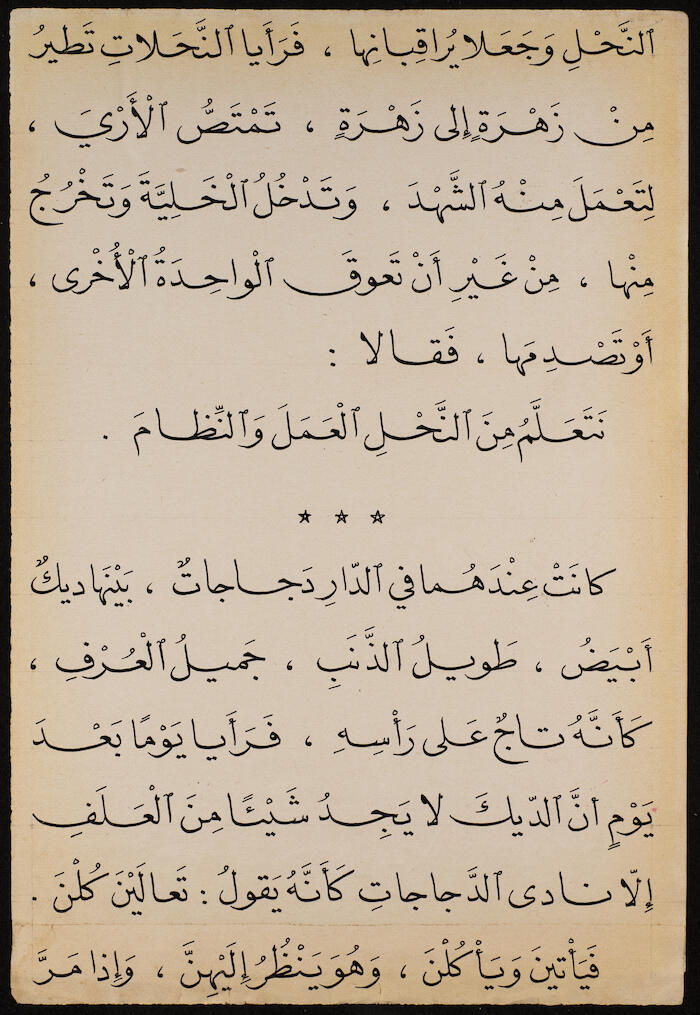 ٱلنَّحْلِ وَجَعَلا يُراقِبانِها ، فَرَأَيا ٱلنَّحَلاتِ تَطيرُ
مِنْ زَهْرَةٍ إِلى زَهْرَةٍ ، تَمْتَصُّ ٱلْأَرْيَ ،
لِتَعْمَلَ مِنْهُ ٱلشَّهْدَ ، وَتَدْخُلُ ٱلْخَلِيَّةَ وَتَخْرُجُ
مِنْها ، مِنْ غَيْرِ أَنْ تَعوقَ ٱلْواحِدَةُ ٱلْأُخْرى ،
أَوْ تَصْدِمَها ، فَقالا :
نَتَعَلَّمُ مِنَ ٱلنَّحْلِ ٱلْعَمَلَ وَٱلنِّظامَ .
* * *
كانَتْ عِنْدَهُما في ٱلدّارِ دَجاجاتٌ ، بَيْنَها ديكٌ
أَبْيَضُ ، طَويلُ ٱلذَّنَبِ ، جَميلُ ٱلْعُرْفِ ،
كَأَنَّهُ تاجٌ عَلى رَأْسِهِ ، فَرَأَيا يَوْمًا بَعْدَ
يَوْمٍ أَنَّ ٱلدّيكَ لا يَجِدُ شَيْئًا مِنَ ٱلْعَلَفِ
إِلّا نادى ٱلدَّجاجاتِ كَأَنَّهُ يَقولُ : تَعالَيْنَ كُلْنَ .
فَيَأْتينَ وَيَأْكُلْنَ ، وَهُوَ يَنْظُرُ إِلَيْهِنَّ ، وَإِذا مَرَّ